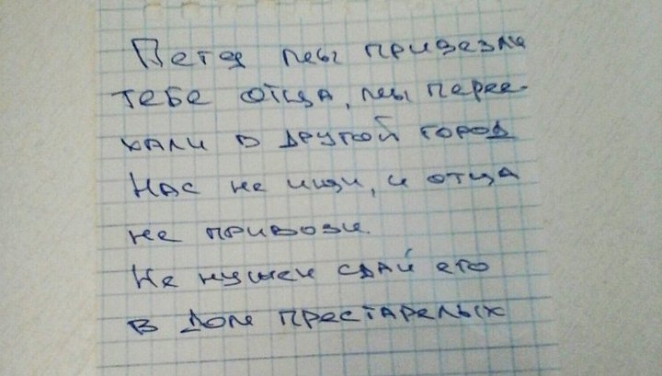 Петя мы привезли
тебе отца, мы перее-
хали в другой город
Нас не ищи, и отца
не привози.
Не нужен сдай его
в дом престарелых